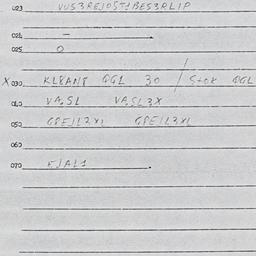 023 VUS3REJOST1BES3RLIP
024 —
025 O
X 030 KL8AN8 QGL 30 / Stok QGL
040 VA,SL VA,SL3X
050 GPEJL2XL GPEJL3XL
060
070 EJAL1